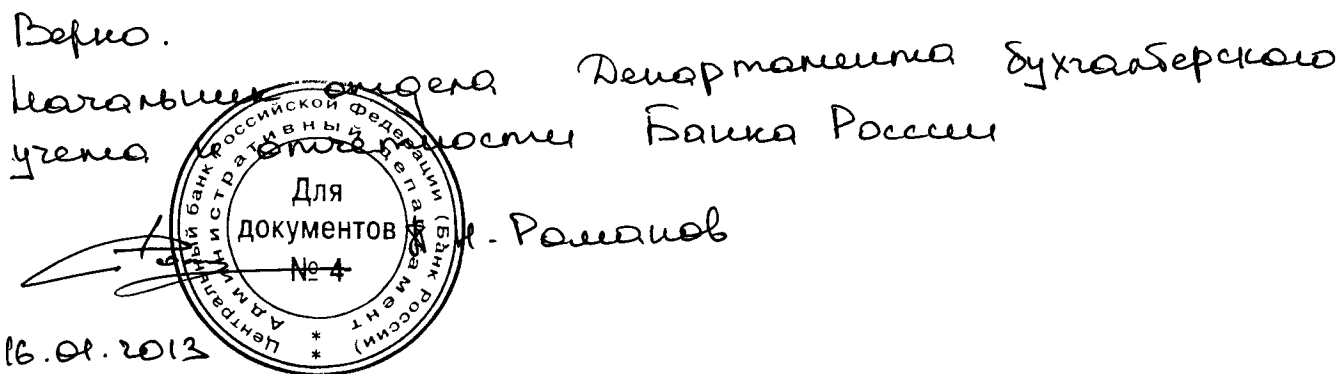 Верно.
Начальник отдела Департамента бухгалтерского
учета и отчетности Банка России
Н. Романов
16.01.2013
Центральный банк Российской Федерации (Банк России)
Административный департамент
Для
документов
№ 4
* *